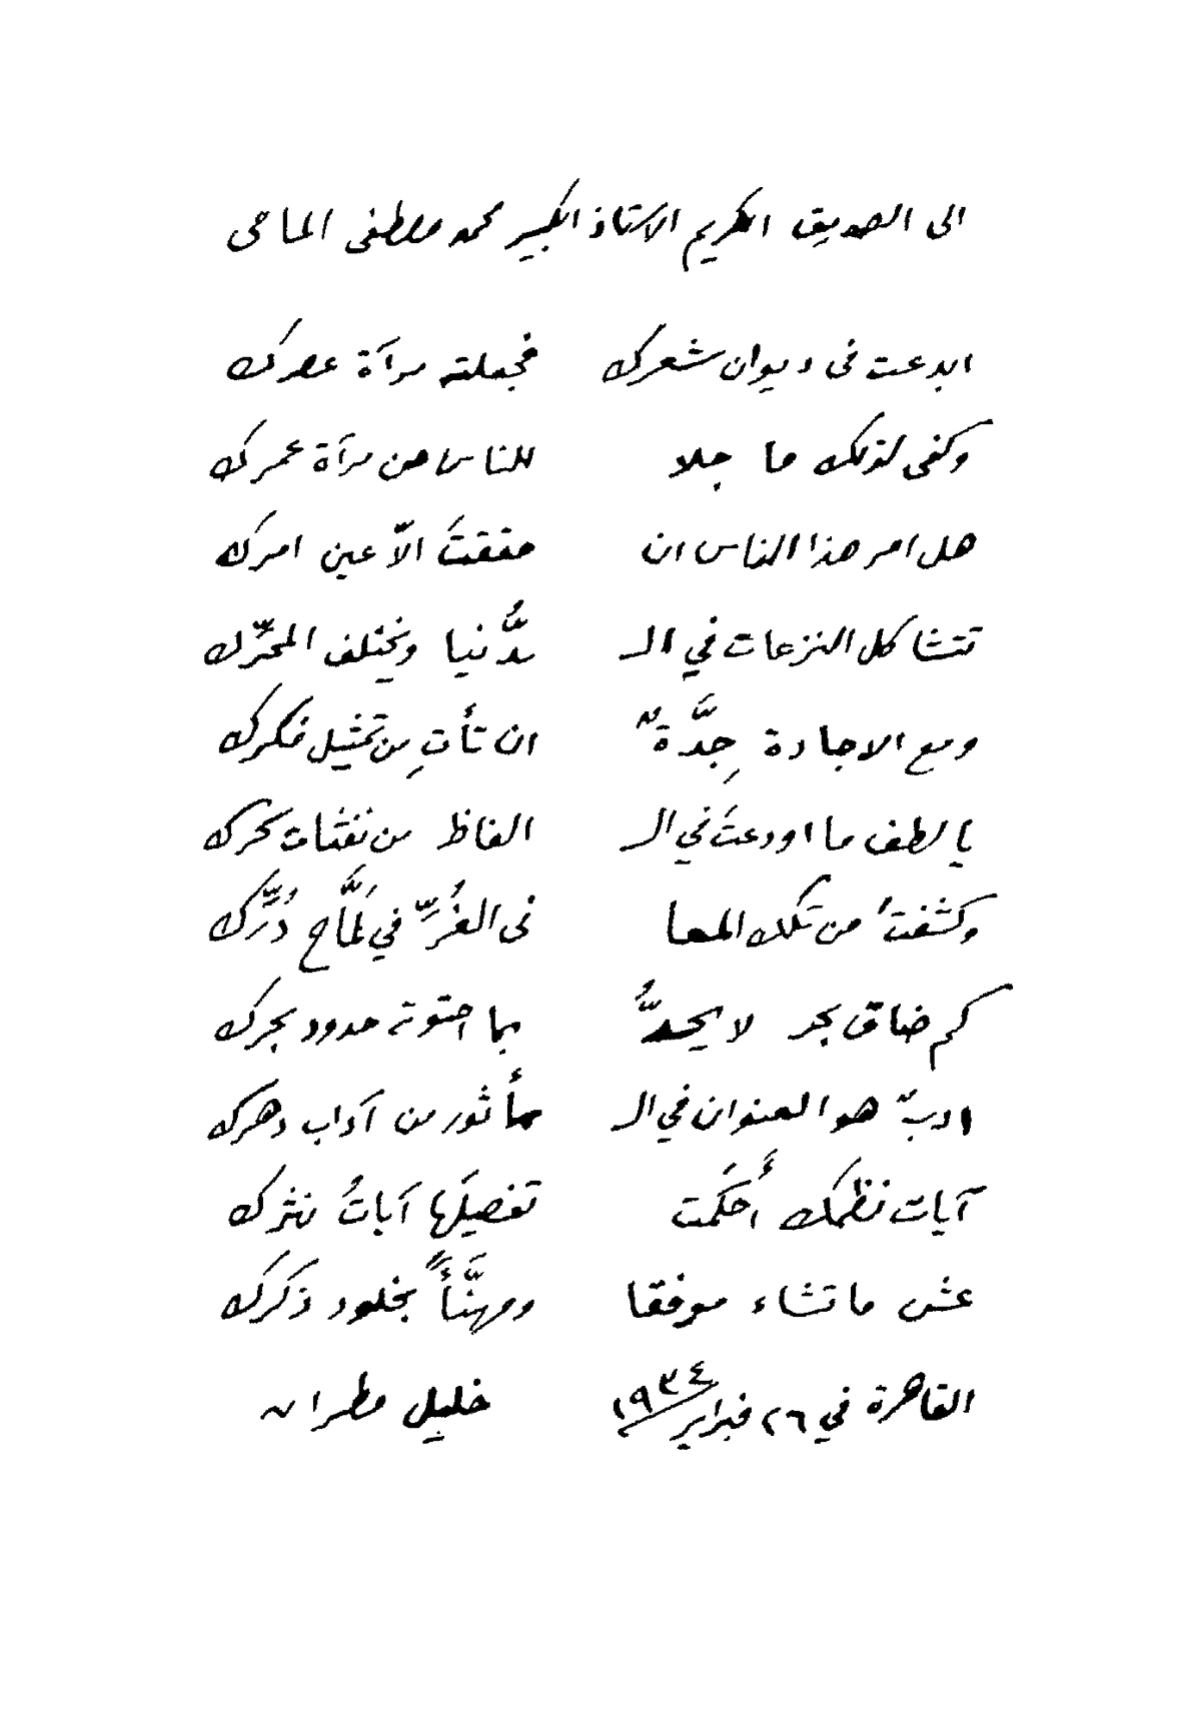 الى الصديق الكريم الاستاذ الكبير محمد مصطفى الماحى
ابدعت فى ديوان شعرك فجعلته مرآة عصرك
وكفى لذلك ما جلا للناس من مرآة عمرك
هل امر هذا الناس ان حققتَ الاّ عين امرك
تتشاكل النزعات في الـ ـدُّنيا ويختلف المحرِّك
ومع الاجادة جِدَّةٌ ان تأتِ من تمثيل فكرك
يا لطف ما اودعتَ في الـ الفاظ من نفثات سحرك
وكشفتَ من تلك المعا نى الغُرِّ في لَمَّاح دُرِّك
كم ضاق بحر لا يحدُّ بما احتوته حدود بحرك
ادبٌ هو العنوان في الـ مأثور من آداب دهرك
آيات نظمك أُحكَمت تفصيلَها آياتُ نثرك
عش ما تشاء موفقا ومهنَّأً بخلود ذكرك
القاهرة في ٢٦ فبراير ١٩٣٤ خليل مطران